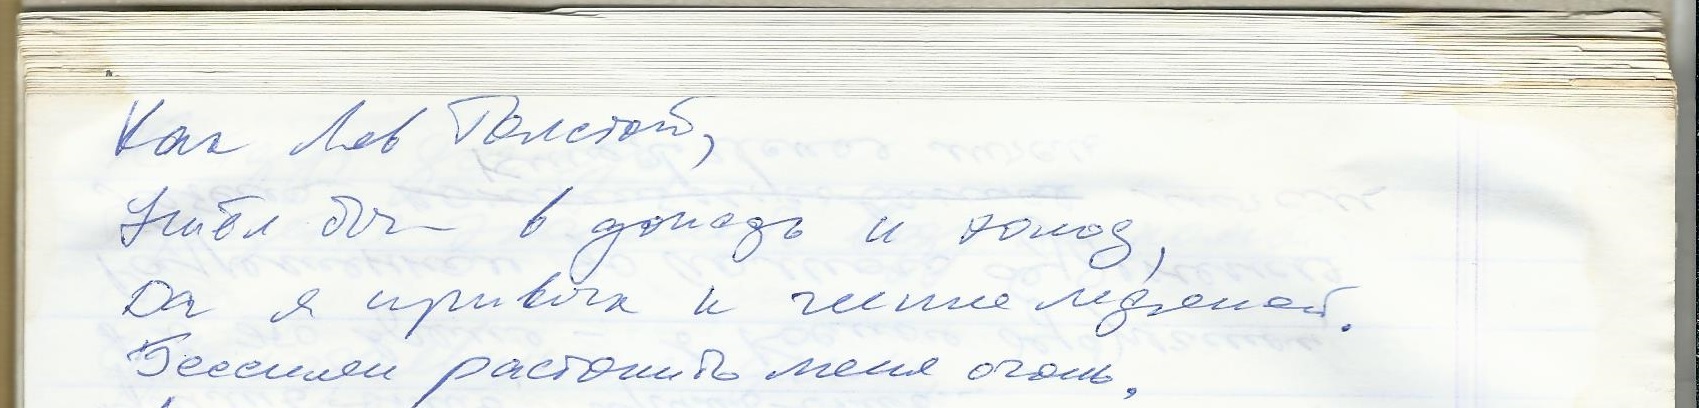 Как Лев Толстой,
Ушёл бы в дождь и холод,
Да я привык к тишине ледяной.
Бессилен растопить меня огонь.